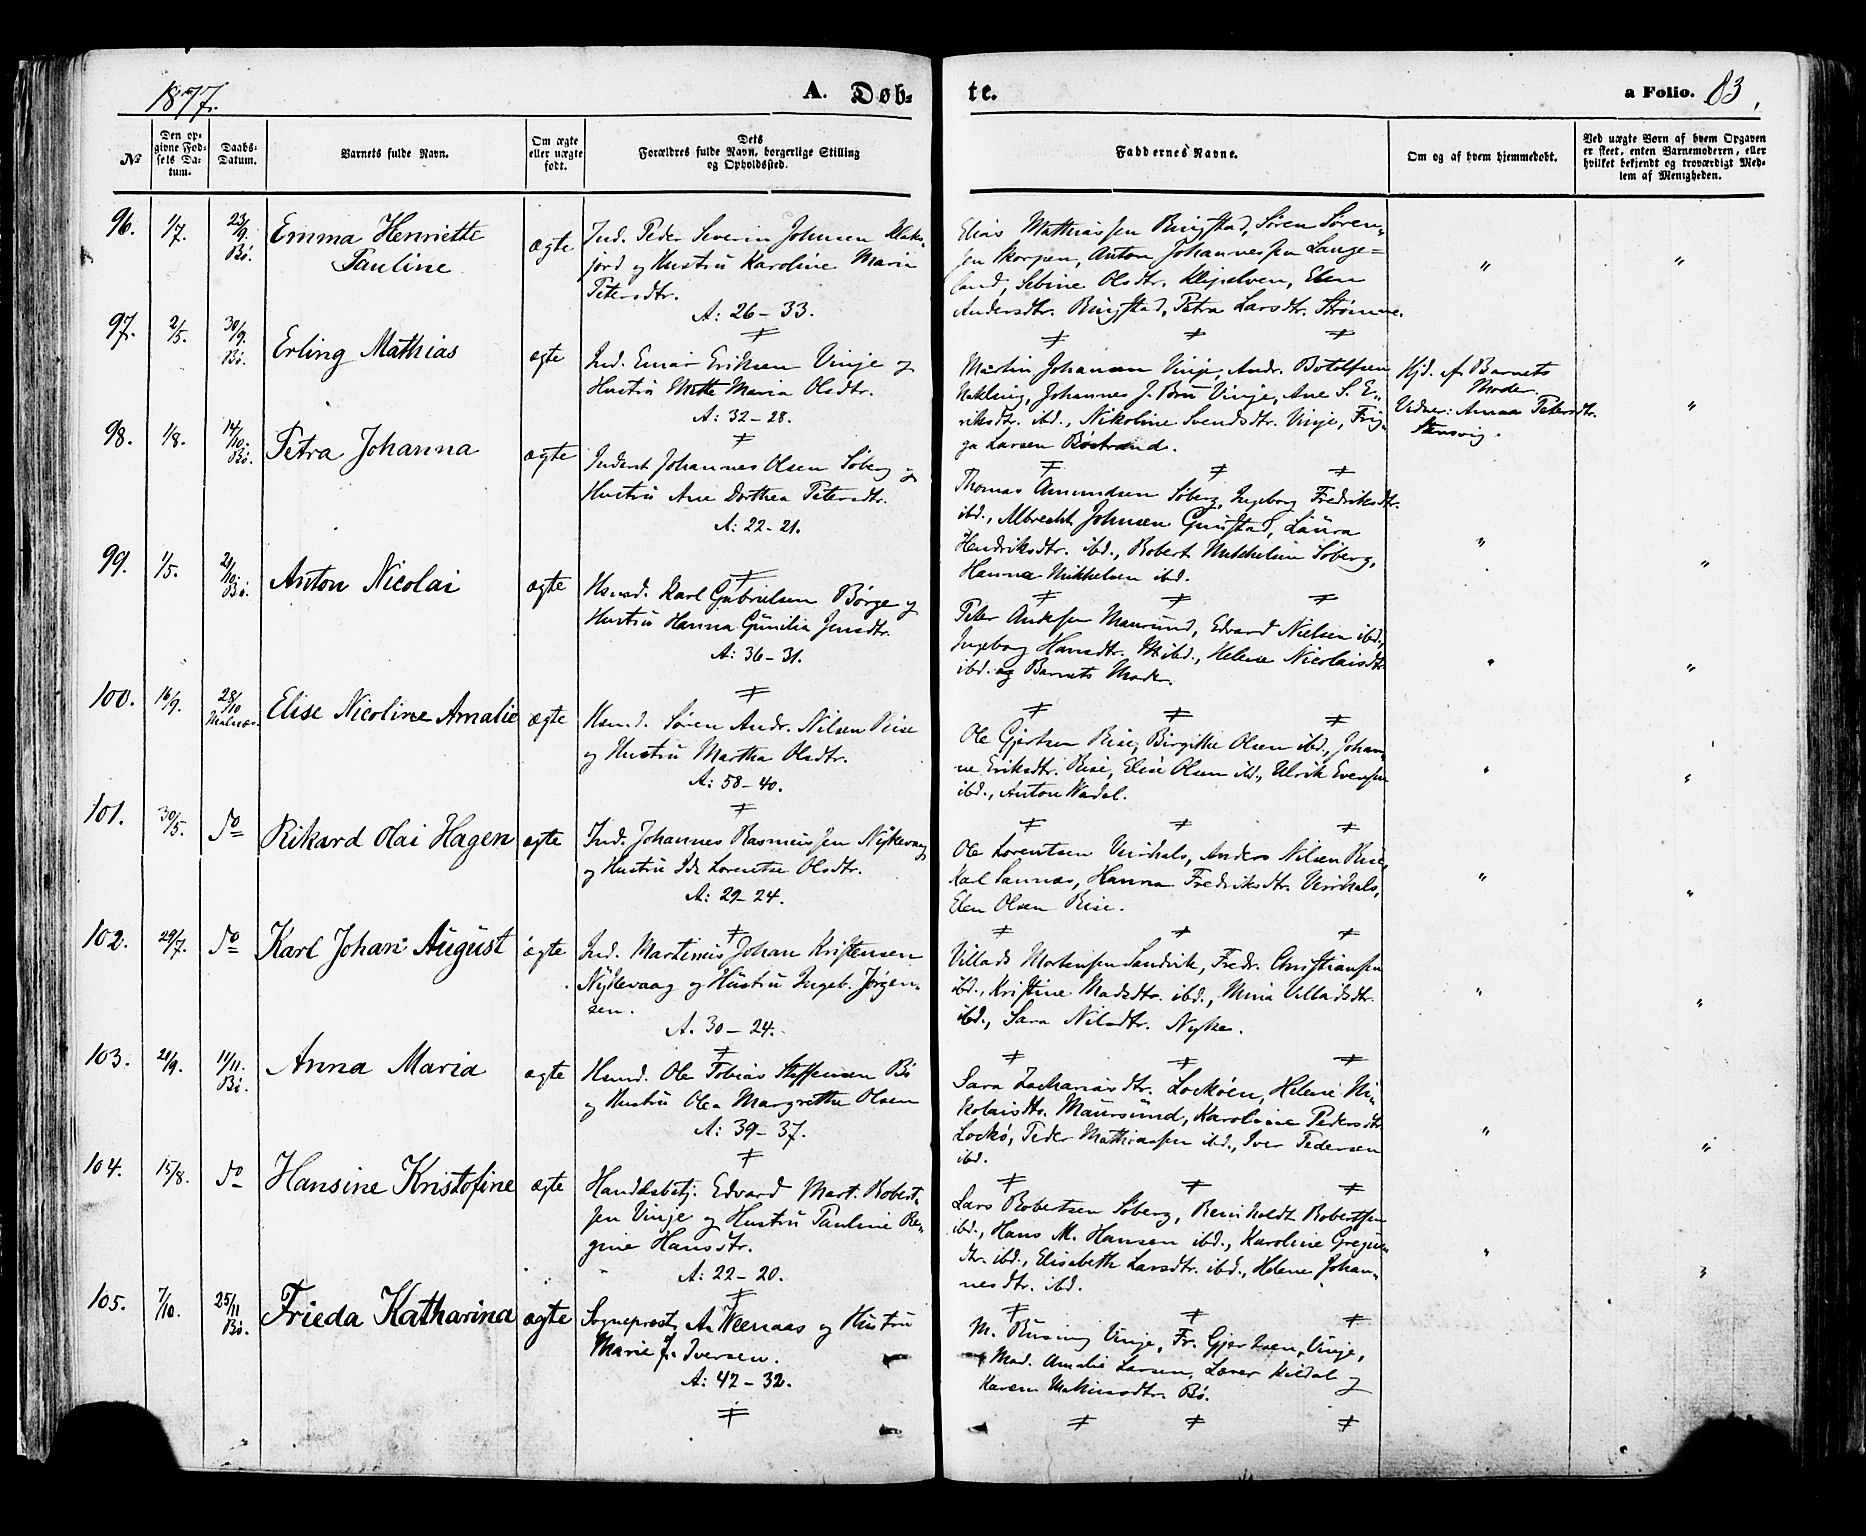 1877.
A. Døb-
te.
a Folio. 83.
No
Den op-
givne Fød-
sels Da-
tum.
Daabs-
Datum.
Barnets fulde Navn.
Om ægte
eller uægte
født.
Dets
Forældres fulde Navn, borgerlige Stilling
og Opholdssted.
Faddernes Navne.
Om og af hvem hjemmedøbt.
Ved uægte Børn af hvem Opgaven
er skeet, enten Barnemoderen, eller
hvilket bekjendt og troværdigt Med-
lem af Menigheden.
96. 1/7. 23/9 Bø. Emma Henriette
Pauline
ægte
Ind. Peder Severin Johnsen Klaks-
jord og Hustru Karoline Maria
Petersdtr.
A: 26-33.
Elias Mathiassen Ringstad, Søren Søren-
sen Skorpen, Anton Johannessen Lange-
land, Sebine Olsdtr. Elen
Andersdtr. Ringstad, Petra Larsdtr. Strømme.
" "
97. 2/5. 30/9. Bø. Erling Mathias
ægte
Ind. Einar Eriksen Vinje og
Hustru Mette Maria Olsdtr.
A: 32-28.
Martin Johansen Vinje, Andr. Botolfsen
Johannes J. Vinje, Ane S. E-
riksdtr. ibd., Nikoline Svendsdtr. Vinje,
Larsen Bøstrand.
Hjd. af Barnets
Moder.
Vidner: Anna Petersdtr.
"
98. 1/8. 14/10. Bø. Petra Johanna
ægte
Inderst Johannes Olsen Søberg og
Hustru Ane Dorthea Petersdtr.
A: 22-21.
Thomas Amundsen Søberg, Ingeborg Fredriksdtr.
ibd., Albrecht Johnsen Guustad, Laura
Hendriksdtr. ibd., Robert Mikkelsen Søberg,
Hanna Mikkelsen ibd.
" "
99. 1/5. 21/10. Bø. Anton Nicolai
ægte
Hsmd. Karl Gabrielsen Børge og
Hustru Hanna Gunilia Jensdtr.
A: 36-31.
Peter Andersen Maurund, Edvard Nielsen ibd.,
Ingeborg Hansdtr. ibd., Helene Nicolaisdtr.
ibd. og Barnets Moder.
" "
100. 16/9. 28/10 Malnæs. Elise Nicoline Amalie
ægte
Hsmd. Søren Andr. Nilsen Rise
og Hustru Martha Olsdtr.
A: 58-40.
Ole Gjertsen Rise, Birgitte Olsen ibd., Johan-
ne Eriksdtr. Rise, Elise Olsen ibd., Ulrik Evensen
ibd., Anton
" "
101. 30/5. Do Rikard Olai Hagen
ægte
Ind. Johannes Rasmussen Nykevaag
og Hustru Ida Lorentse Olsdtr.
A: 29-24.
Ole Lorentsen Anders Nilsen Rise,
Karl Hanna Fredriksdtr.
Elen Olsen Rise.
" "
102. 29/7. Do Karl Johan August
ægte
Ind. Martinus Johan Kristensen
Nykevaag og Hustru Ingeb. Jørgen-
sen.
A. 30-24.
Villads Mortensen Sandvik, Fredr. Christiansen
ibd., Kristine Madsdtr. ibd., Mina Villadsdtr.
ibd., Sara Nilsdtr. Nyke.
" "
103. 21/9. 11/11. Bø. Anna Maria
ægte
Hsmd. Ole Tobias Steffensen Bø
og Hustru Olea Margrethe Olsen
A: 39-37.
Sara Zachariasdtr. Lockøen, Helene Ni-
kolaisdtr. Maursund, Karoline Pedersdtr.
Lockø, Peder Mathiassen ibd., Iver Pedersen
ibd.
" "
104. 15/8. Do Hansine Kristofine
ægte
Handelsbetj. Edvard Mart. Robert-
sen Vinje og Hustru Pauline Re-
gine Hansdtr.
A: 22-20.
Lars Robertsen Søberg, Reinholdt Robertsen
ibd., Hans M. Hansen ibd., Karoline
dtr. ibd., Elisabeth Larsdtr. ibd., Helene Johan-
nesdtr. ibd.
" "
105. 7/10. 25/11 Bø. Frieda Katharina
ægte
Sogneprest A. Weenaas og Hustru
Marie J. Iversen.
A: 42-32.
M. Vinje, Fr. Gjertsen, Vinje,
Mad. Amalie Larsen, Lærer Kildal og
Karen Bø.